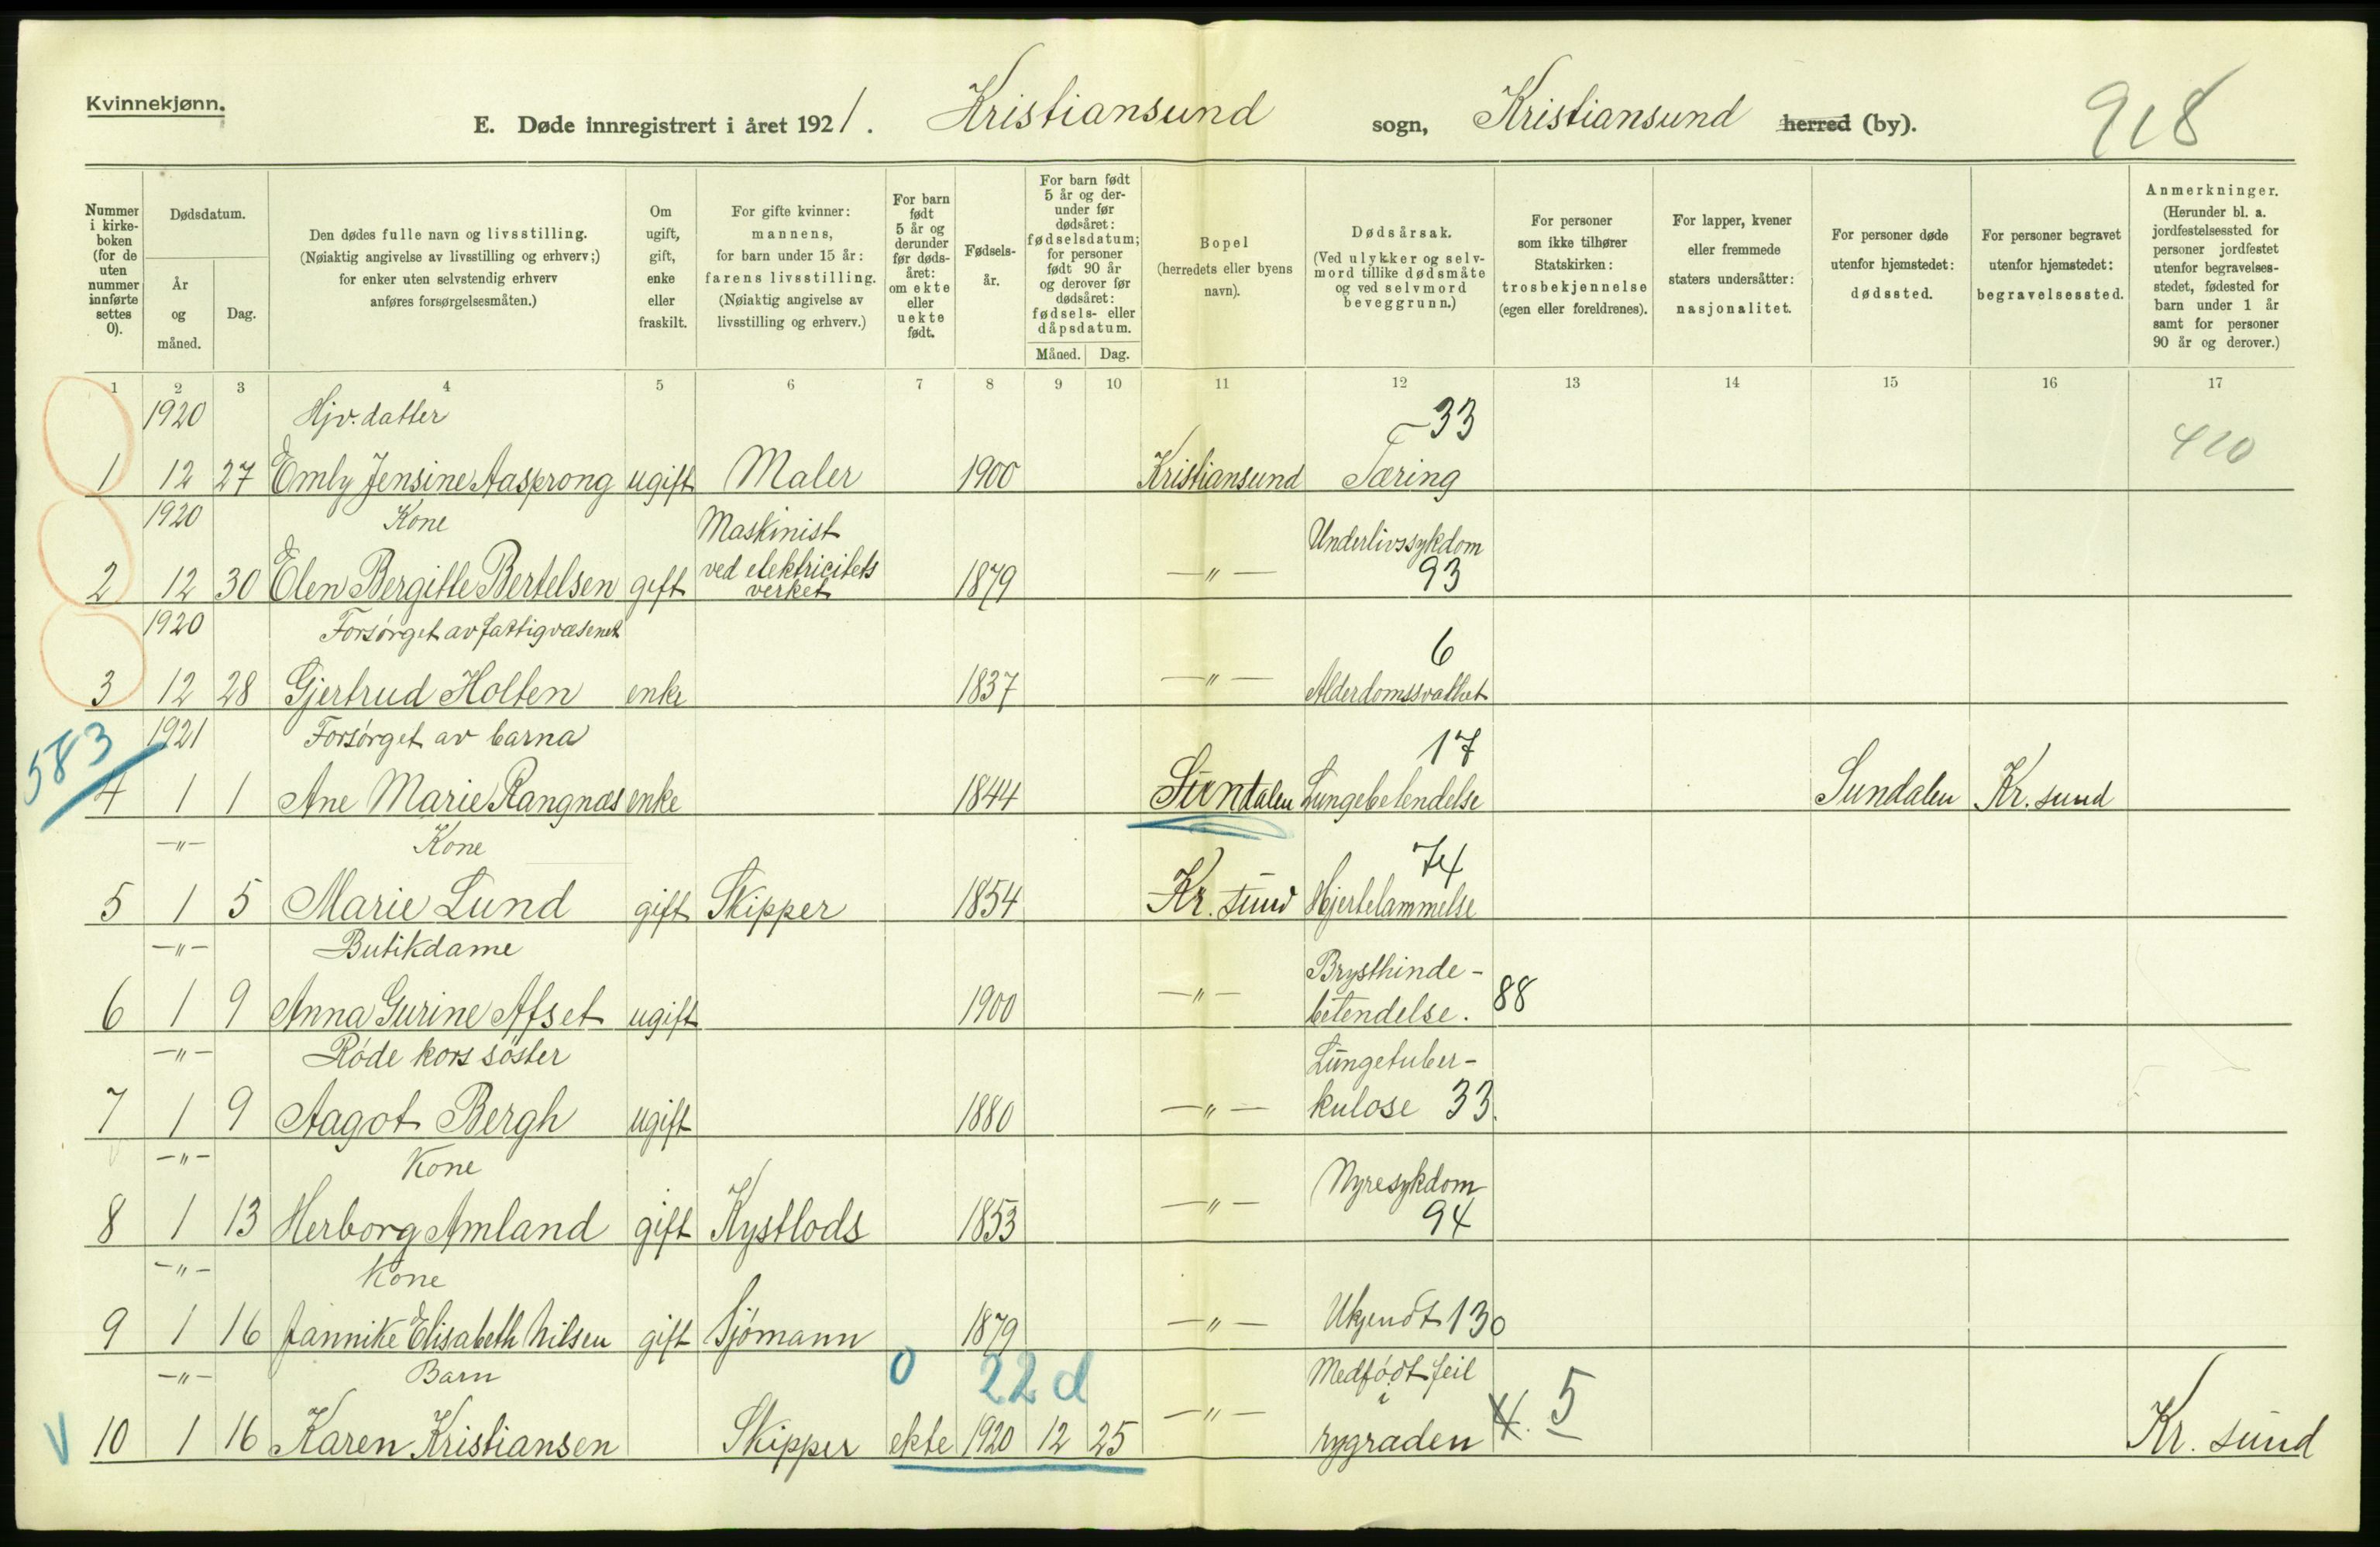 Kvinnekjønn.
E. Døde innregistrert i året 1921. Kristiansund sogn, Kristiansund herred (by). 918
Nummer i kirke-boken (for de uten nummer innførte settes 0).
Dødsdatum.
År og måned.
Dag.
Den dødes fulle navn og livsstilling.
(Nøiaktig angivelse av livsstilling og erhverv;)
for enker uten selvstendig erhverv
anføres forsørgelsesmåten.)
Om ugift, gift, enke eller fraskilt.
For gifte kvinner:
mannens,
for barn under 15 år:
farens livsstilling.
(Nøiaktig angivelse av
livsstilling og erhverv.)
For barn født 5 år og derunder før døds-året: om ekte eller uekte født.
Fødsels-år.
For barn født 5 år og der-under før dødsåret: fødselsdatum; for personer født 90 år og derover før dødsåret: fødsels- eller dåpsdatum.
Måned. Dag.
Bopel
(herredets eller byens
navn).
Dødsårsak.
(Ved ulykker og selv-
mord tillike dødsmåte
og ved selvmord
beveggrunn.)
For personer
som ikke tilhører
Statskirken:
trosbekjennelse
(egen eller foreldrenes).
For lapper, kvener
eller fremmede
staters undersåtter:
nasjonalitet.
For personer døde
utenfor hjemstedet:
dødssted.
For personer begravet
utenfor hjemstedet:
begravelsessted.
Anmerkninger.
(Herunder bl. a.
jordfestelsessted for
personer jordfestet
utenfor begravelses-
stedet, fødested for
barn under 1 år
samt for personer
90 år og derover.)
1 2 3 4 5 6 7 8 9 10 11 12 13 14 15 16 17
1920 Hjv. datter 33
1 12 27 Emly Jensine Aasprong ugift Maler 1900 Kristiansund Tæring 410
1920 Kone Maskinist Underlivssykdom
2 12 30 Elen Bergitte Bertelsen gift ved elektricitets verket 1879 —"— 93
1920 Forsørget av fattigvæsenet 6
3 12 28 Gjertrud Holten enke 1837 —"— Alderdomssvakhet
583 1921 Forsørget av barna 17
4 1 1 Ane Marie Rangnæs enke 1844 Sundalen Lungebetendelse Sundalen Kr. sund
—"— Kone 74
5 1 5 Marie Lund gift Skipper 1854 Kr. sund Hjertelammelse
—"— Butikdame Brysthinde-
6 1 9 Anna Gurine Afset ugift 1900 —"— betendelse. 88
—"— Røde kors søster Lungetuber-
7 1 9 Aagot Bergh ugift 1880 —"— kulose 33.
—"— Kone Nyresykdom
8 1 13 Herborg Amland gift Kystlods 1853 —"— 94
—"— Kone
9 1 16 Jannike Elisabeth Nilsen gift Sjømann 1879 —"— Ukjendt 130
—"— Barn 0 22 d Medfødt feil i
V 10 1 16 Karen Kristiansen Skipper ekte 1920 12 25 —"— rygraden 4. 5 Kr. sund